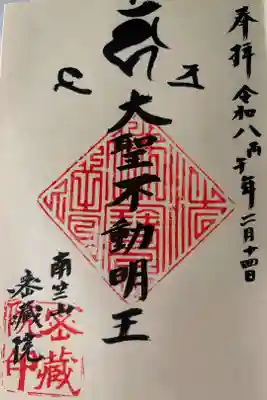 奉拝 令和八丙午年二月十四日
大聖不動明王
南竺山
密蔵院
密藏院印